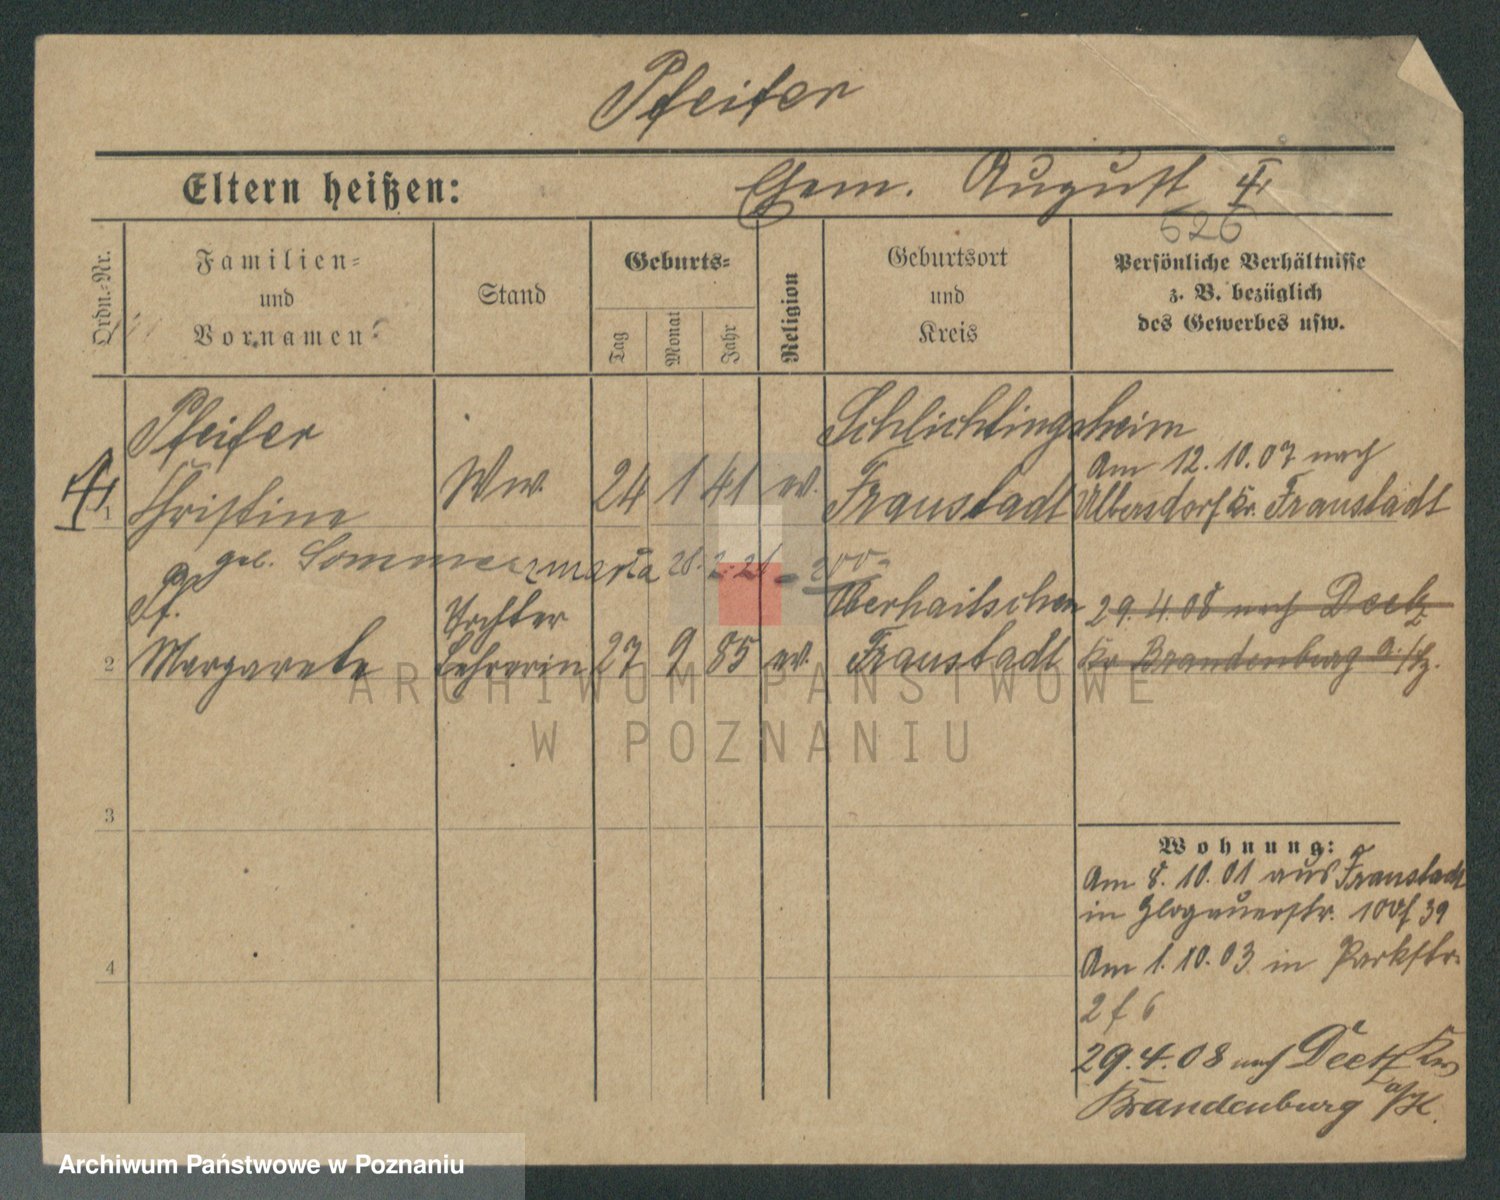 Pfeifer
Eltern heißen:
Ehem. August
626
Ordn.-Nr.
Familien-
und
Vornamen
Stand
Geburts-
Tag
Monat
Jahr
Religion
Geburtsort
und
Kreis
Persönliche Verhältnisse
z. B. bezüglich
des Gewerbes usw.
Pfeifer
Christine
1
Ww.
24 1 41 ev.
Schlichtingsheim
Fraustadt
Am 12.10.07 nach
Ulbersdorf Kr. Fraustadt
geb. Sommer
Pf.
Margarete
2
Tochter
Lehrerin
27 9 85 ev.
Oberhaitschen
Fraustadt
29.4.08 nach Deetz
Kr Brandenburg a/H.
3
4
Wohnung:
Am 8.10.01 aus Fraustadt
in Glogauerstr. 100 f 39
Am 1.10.03 in Parkstr.
2 f 6
29.4.08 nach Deetz Kr
Brandenburg a/H.
ARCHIWUM PAŃSTWOWE
W POZNANIU
Archiwum Państwowe w Poznaniu